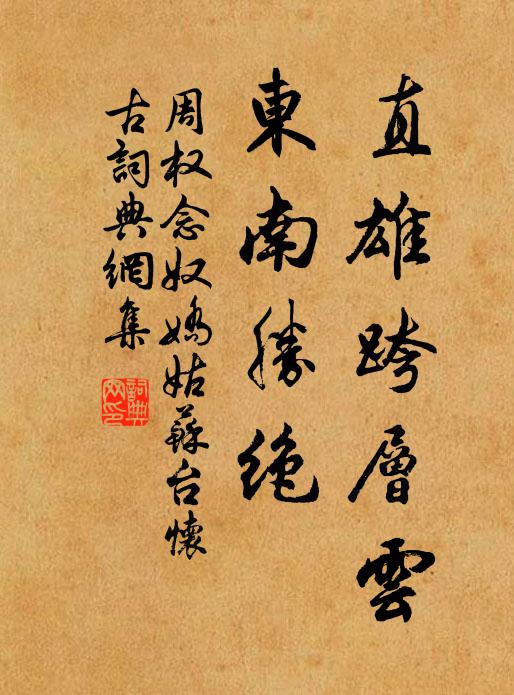 直雄跨層雲
東南勝绝
周权念奴嬌姑蘇台懷
古詞典網集
詞典網印